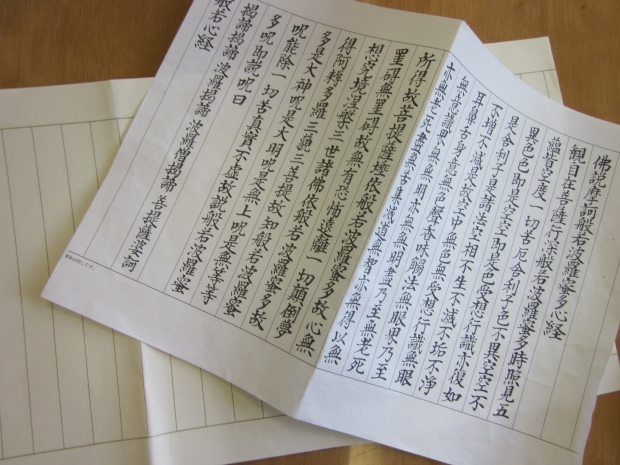 佛説摩訶般若波羅蜜多心経
観自在菩薩行深般若波羅蜜多時照見五
蘊皆空度一切苦厄舎利子色不異空空不
異色色即是空空即是色受想行識亦復如
是舎利子是諸法空相不生不滅不垢不浄
不増不減是故空中無色無受想行識無眼
耳鼻舌身意無色聲香味觸法無眼界乃至
無意識界無無明亦無無明盡乃至無老死
亦無老死盡無苦集滅道無智亦無得以無
所得故菩提薩埵依般若波羅蜜多故心無
罣碍無罣碍故無有恐怖遠離一切顛倒夢
想究竟涅槃三世諸佛依般若波羅蜜多故
得阿耨多羅三藐三菩提故知般若波羅蜜
多是大神呪是大明呪是無上呪是無等等
呪能除一切苦真實不虚故説般若波羅蜜
多呪即説呪曰
揭諦揭諦 波羅揭諦 波羅僧揭諦 菩提薩婆訶
般若心経